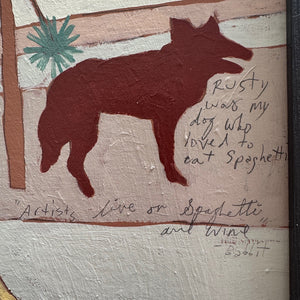 Rusty
was my
dog who
loved to
eat Spaghetti
"Artists live on Spaghetti
and wine"